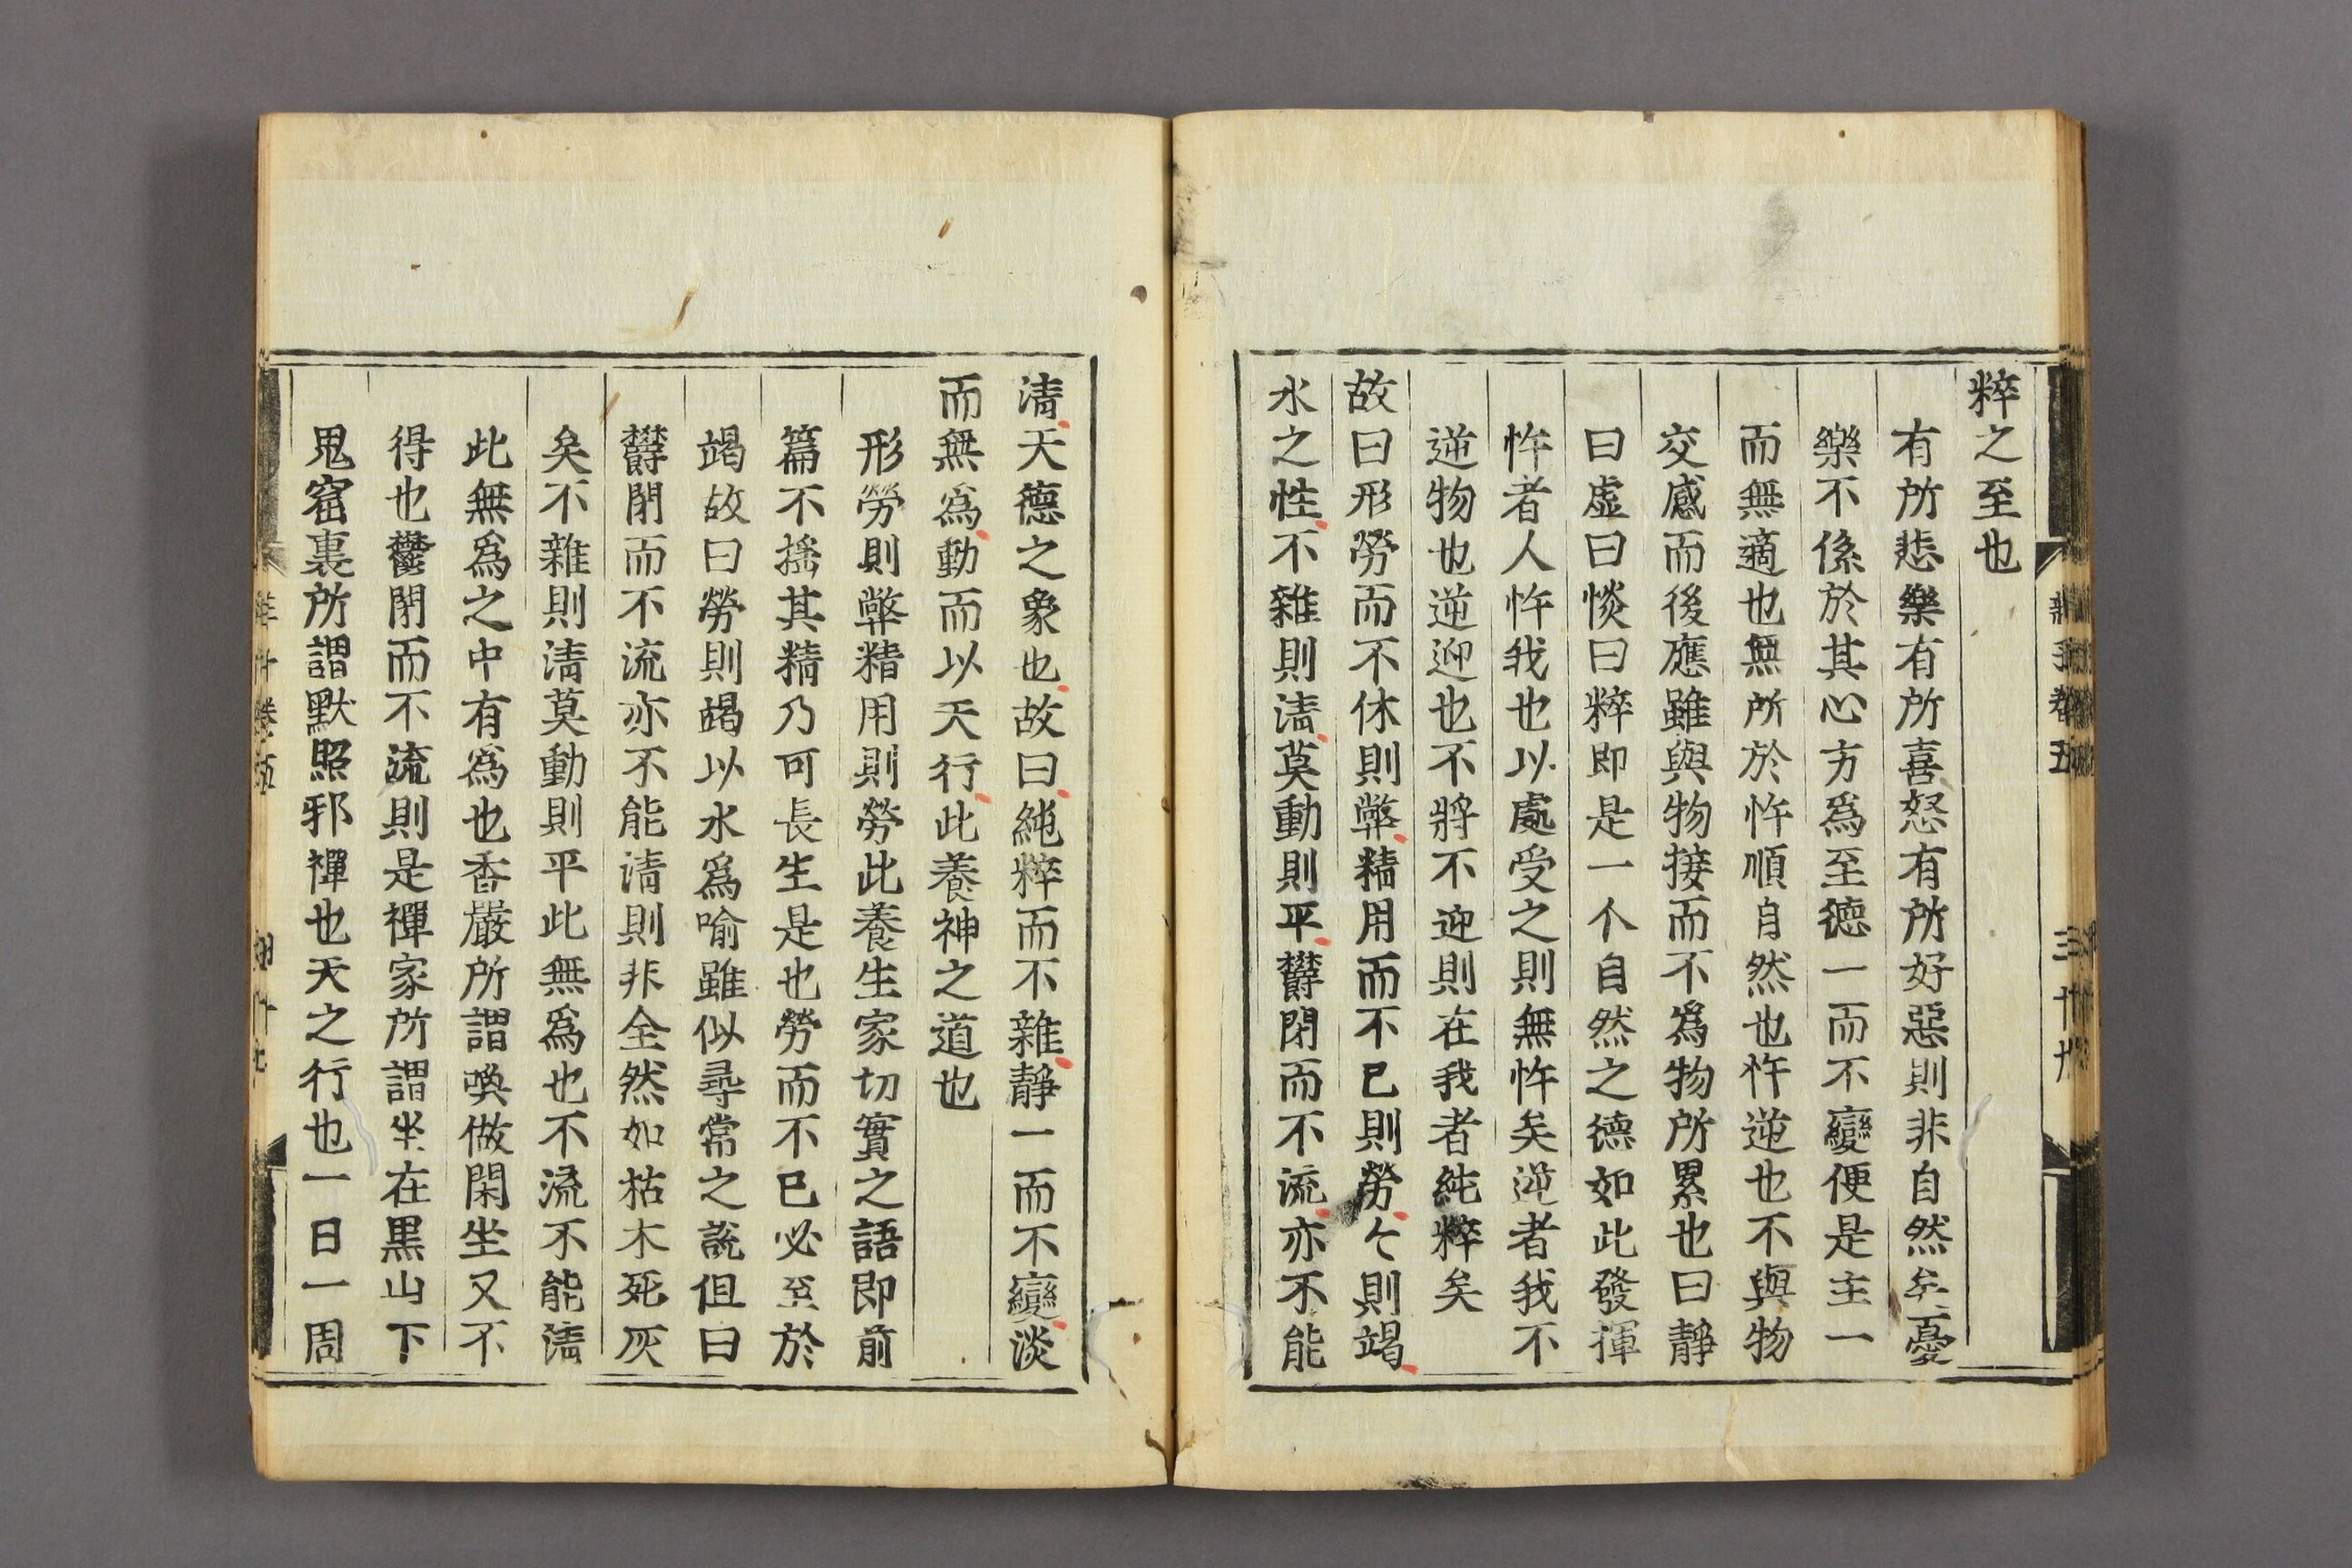 粹之至也
有所悲樂有所喜怒有所好惡則非自然矣憂
樂不係於其心方爲至德一而不變便是主一
而無適也無所於忤順自然也忤逆也不與物
交感而後應雖與物接而不爲物所累也曰靜
曰虛曰惔曰粹即是一个自然之德如此發揮
忤者人忤我也以處受之則無忤矣逆者我不
逆物也逆迎也不將不迎則在我者純粹矣
故曰形勞而不休則弊精用而不已則勞〻則竭
水之性不雜則清莫動則平欝閉而不流亦不能
清天德之象也故曰純粹而不雜靜一而不變淡
而無爲動而以天行此養神之道也
形勞則弊精用則勞此養生家切實之語即前
篇不搖其精乃可長生是也勞而不已必至於
竭故曰勞則竭以水爲喻雖似尋常之說但曰
欝閉而不流亦不能清則非全然如枯木死灰
矣不雜則清莫動則平此無爲也不流不能清
此無爲之中有爲也香嚴所謂喚做閑坐又不
得也鬱閉而不流則是禪家所謂坐在黒山下
鬼窟裏所謂默照邪禪也天之行也一日一周